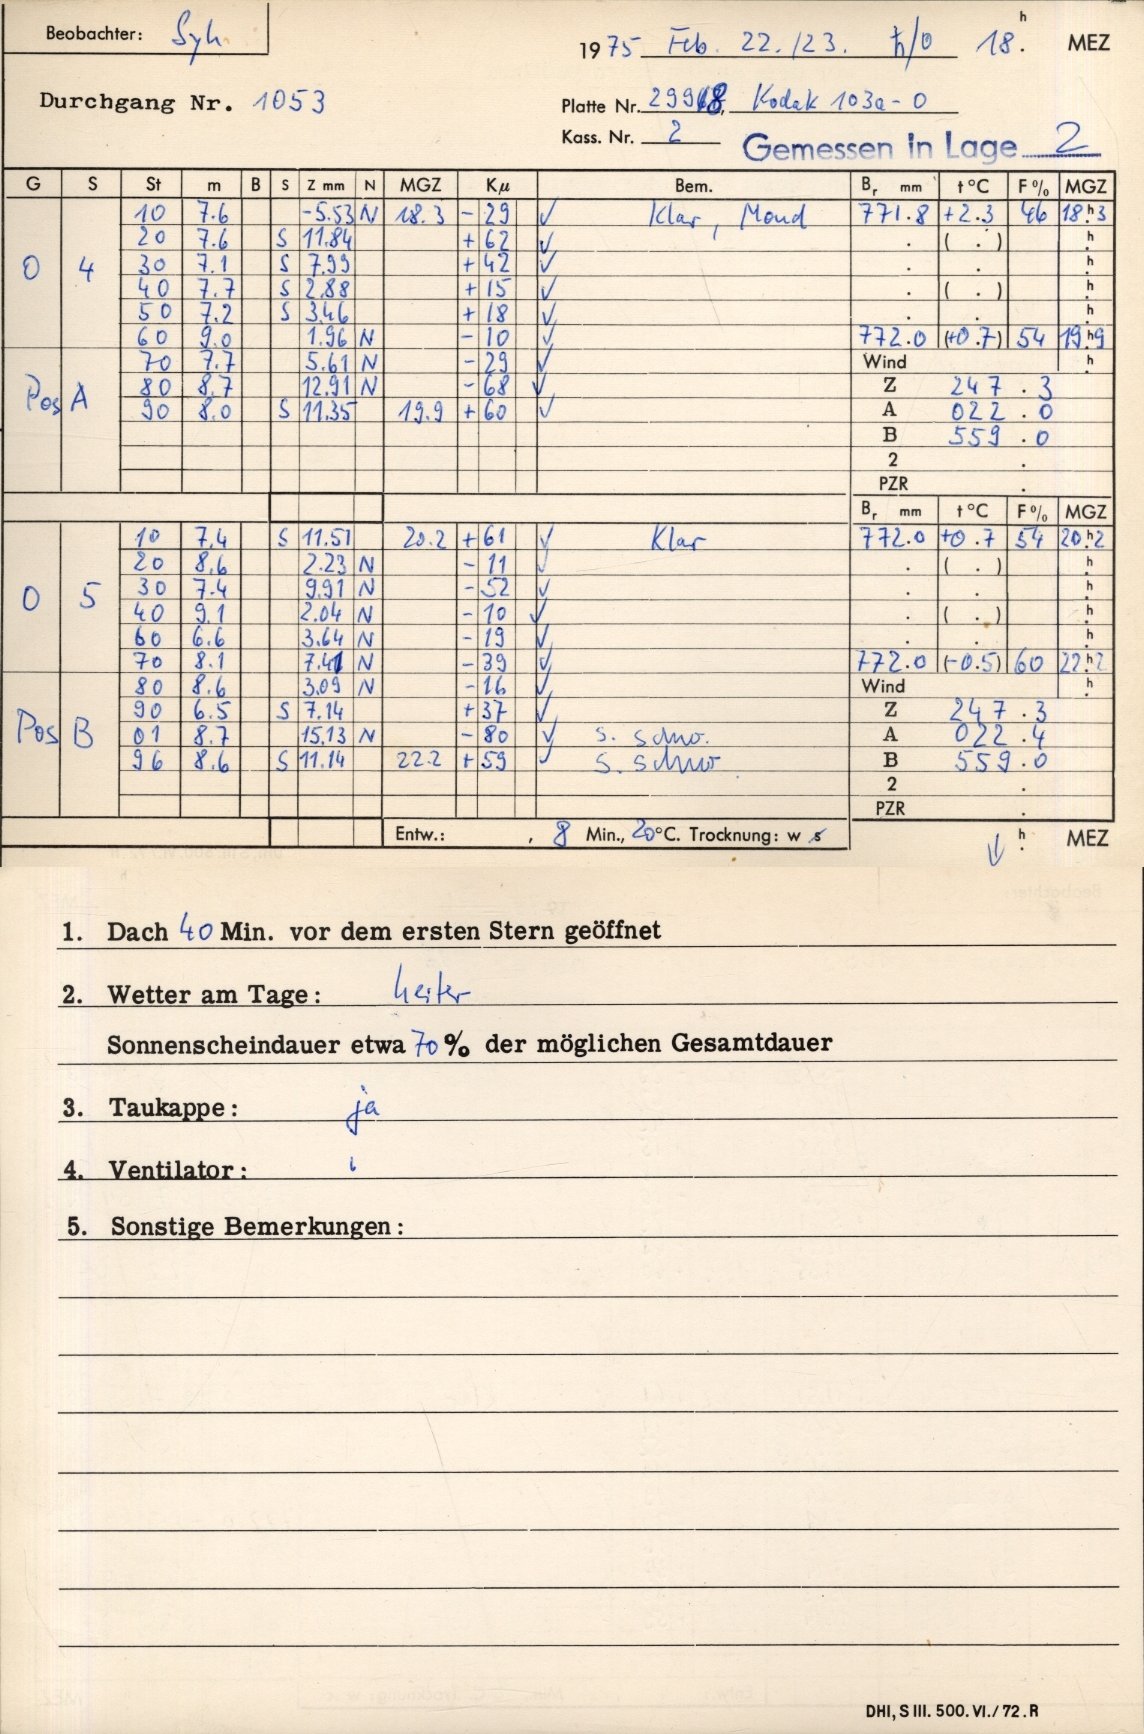 Beobachter: Syh
1975 Feb. 22./23. ♄/☉ 18.h MEZ
Durchgang Nr. 1053
Platte Nr. 2998, Kodak 103a-0
Kass. Nr. 2
Gemessen in Lage 2
G S St m B S Z mm N MGZ Kµ Bem. Br mm t °C F % MGZ
10 7.6 -5.53 N 18.3 - 29 ✓ Klar, Mond 771.8 +2.3 46 18.h3
20 7.6 S 11.84 + 62 ✓ . ( . ) h
0 4 30 7.1 S 7.99 + 42 ✓ . . h
40 7.7 S 2.88 + 15 ✓ . ( . ) h
50 7.2 S 3.46 + 18 ✓ . . h
60 9.0 1.96 N - 10 ✓ 772.0 (+0.7) 54 19.h9
70 7.7 5.61 N - 29 ✓ Wind h
Pos A 80 8.7 12.91 N - 68 ✓ Z 247.3
90 8.0 S 11.35 19.9 + 60 ✓ A 022.0
B 559.0
2 .
PZR .
Br mm t °C F % MGZ
10 7.4 S 11.51 20.2 + 61 ✓ Klar 772.0 +0.7 54 20.h2
20 8.6 2.23 N - 11 ✓ . ( . ) h
0 5 30 7.4 9.91 N - 52 ✓ . . h
40 9.1 2.04 N - 10 ✓ . ( . ) h
60 6.6 3.64 N - 19 ✓ . . h
70 8.1 7.41 N - 39 ✓ 772.0 (-0.5) 60 22.h2
80 8.6 3.09 N - 16 ✓ Wind h
90 6.5 S 7.14 + 37 ✓ Z 247.3
Pos B 01 8.7 15.13 N - 80 ✓ s. schw. A 022.4
96 8.6 S 11.14 22.2 + 59 ✓ s. schw B 559.0
2 .
PZR .
Entw.: , 8 Min., 20°C. Trocknung: w s h. MEZ
1. Dach 40 Min. vor dem ersten Stern geöffnet
2. Wetter am Tage: heiter
Sonnenscheindauer etwa 70 % der möglichen Gesamtdauer
3. Taukappe: ja
4. Ventilator:
5. Sonstige Bemerkungen:
DHI, S III. 500. VI./72. R